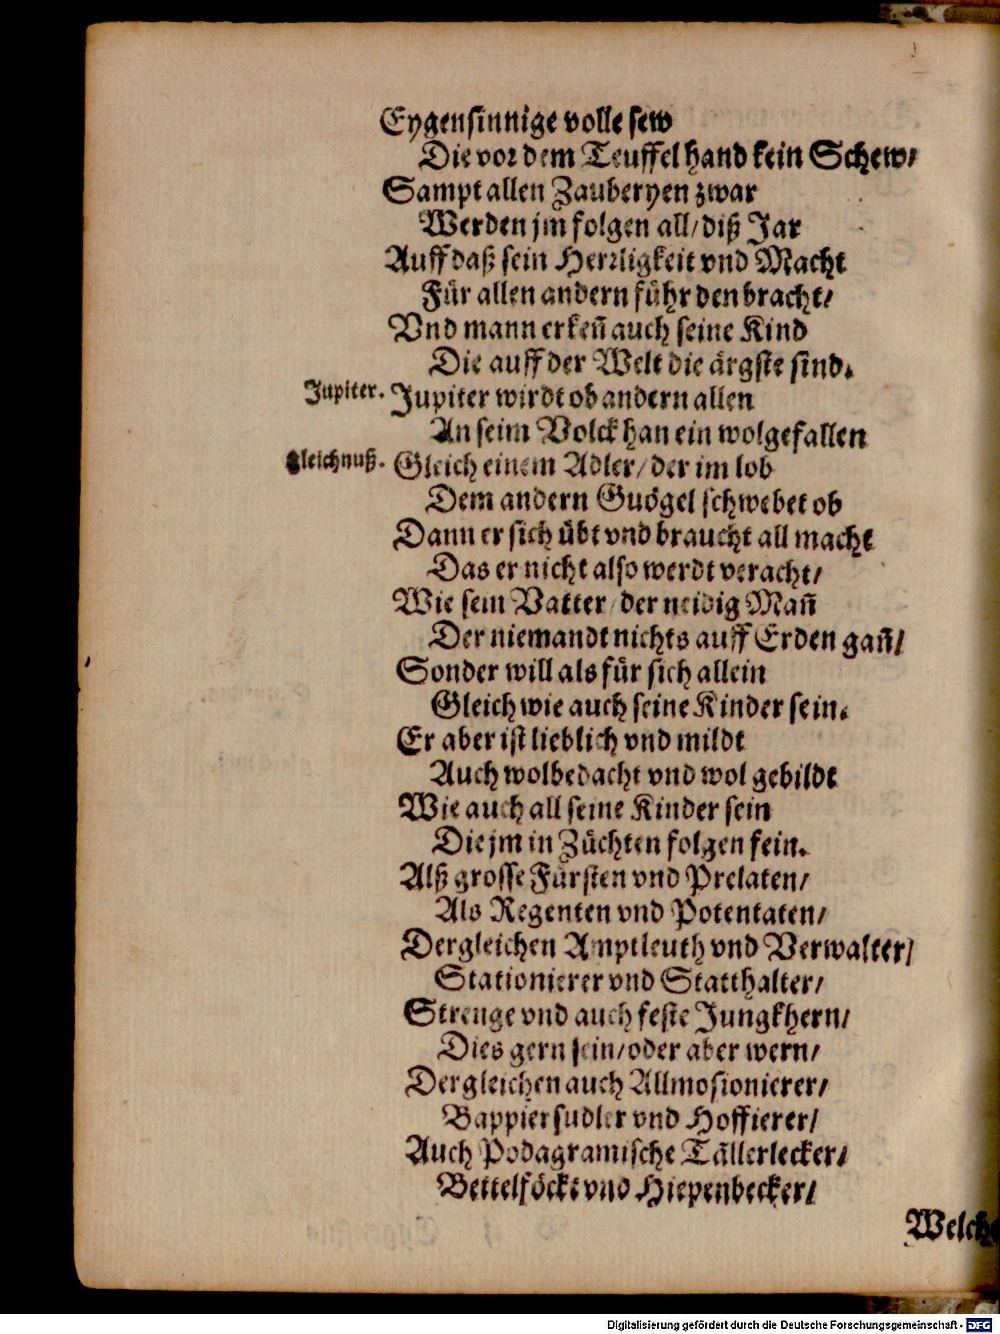 Eygensinnige volle sew
Die vor dem Teuffel hand kein Schew/
Sampt allen Zauberyen zwar
Werden jm folgen all/ diß Jar
Auff daß sein Herrligkeit vnd Macht
Für allen andern führ den bracht/
Vnd mann erkeñ auch seine Kind
Die auff der Welt die ärgste sind.
Jupiter. Jupiter wirdt ob andern allen
An seim Volck han ein wolgefallen
Gleichnuß. Gleich einem Adler/ der im lob
Dem andern Guögel schwebet ob
Dann er sich übt vnd braucht all macht
Das er nicht also werdt veracht/
Wie sein Vatter/ der neidig Mañ
Der niemandt nichts auff Erden gañ/
Sonder will als für sich allein
Gleich wie auch seine Kinder sein.
Er aber ist lieblich vnd mildt
Auch wolbedacht vnd wol gebildt
Wie auch all seine Kinder sein
Die jm in Züchten folgen fein.
Alß grosse Fürsten vnd Prelaten/
Als Regenten vnd Potentaten/
Dergleichen Amptleuth vnd Verwalter/
Stationierer vnd Statthalter/
Strenge vnd auch feste Jungkhern/
Dies gern sein/ oder aber wern/
Dergleichen auch Allmosionierer/
Bappiersudler vnd Hoffierer/
Auch Podagramische Tällerlecker/
Bettelföckt vnd Hiepenbecker/
Welche
Digitalisierung gefördert durch die Deutsche Forschungsgemeinschaft - DFG